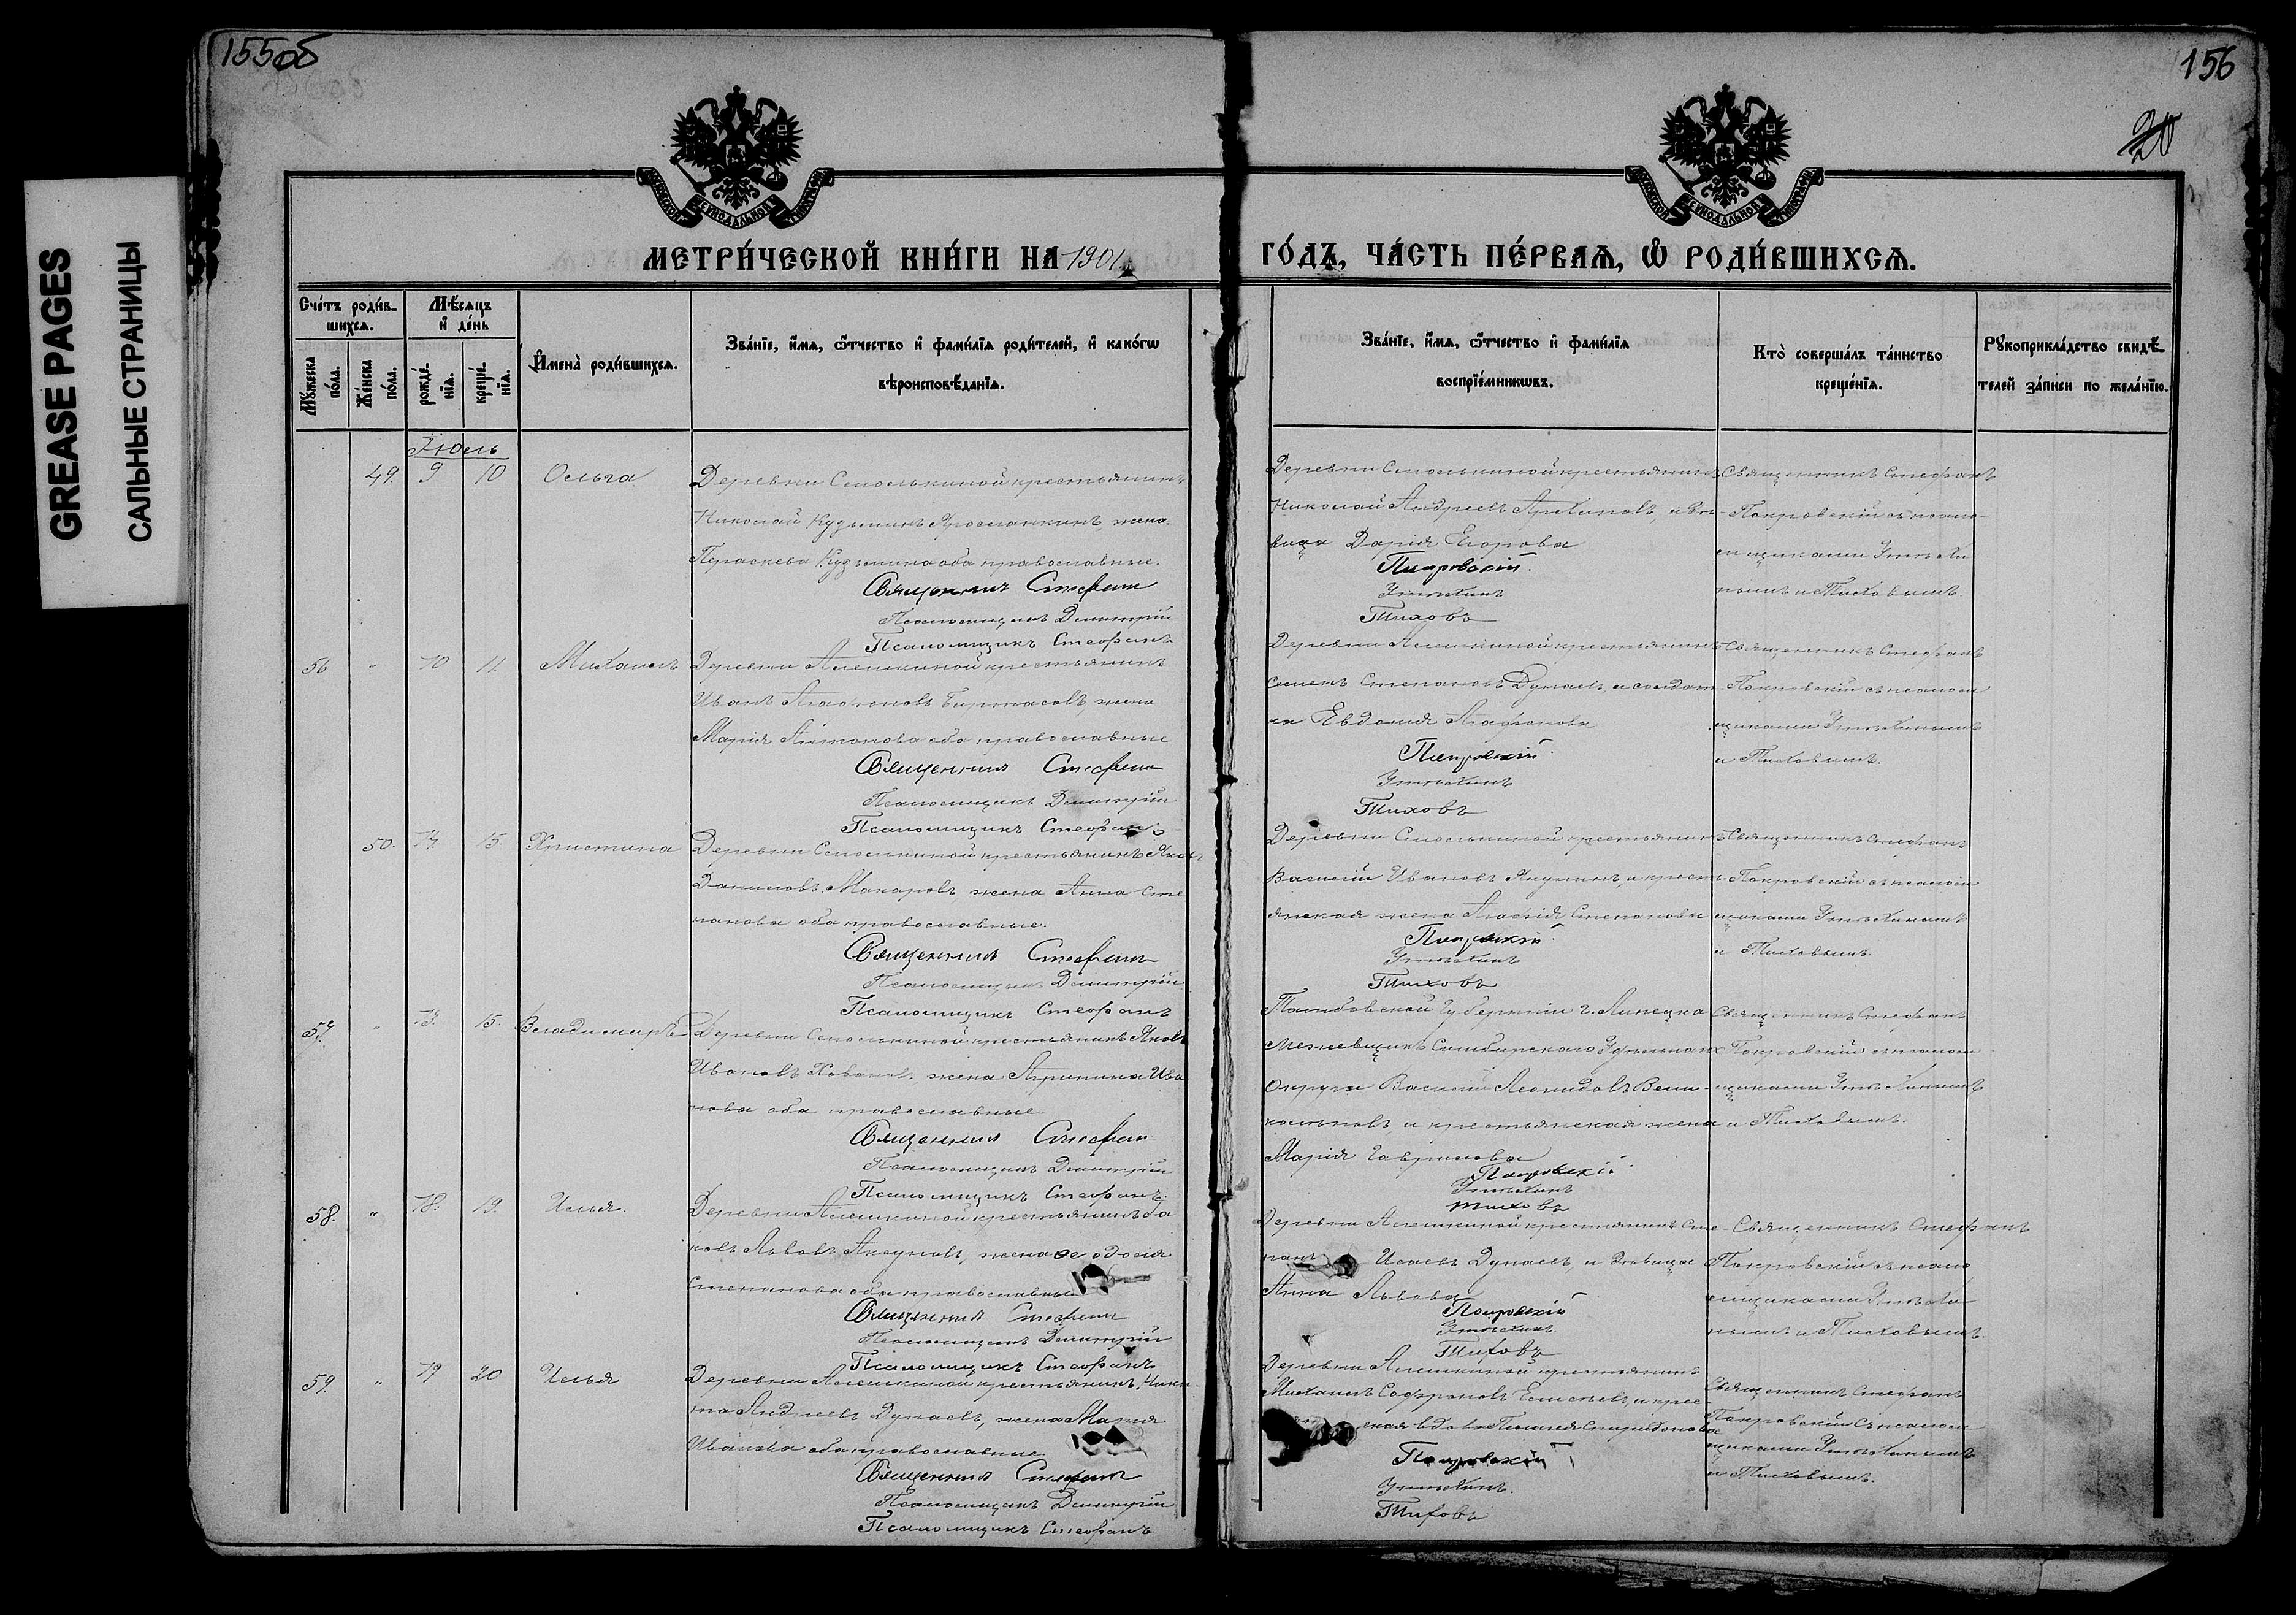 155об
156
20
GREASE PAGES
САЛЬНЫЕ СТРАНИЦЫ
МОСКОВСКОЙ СѴНОДАЛЬНОЙ ТИПОГРАФІИ
МОСКОВСКОЙ СѴНОДАЛЬНОЙ ТИПОГРАФІИ
МЕТРИ́ЧЕСКОЙ КНИ́ГИ НА 1901
ГО́ДЪ, ЧА́СТЬ ПЕ́РВАѦ, Ѡ РОДИ́ВШИХСѦ.
Сче́тъ роди́в-
шихсѧ.
Мꙋжеска по́ла.
Же́нска по́ла.
Мѣ́сѧцъ
и҆ де́нь
рожде́-
нїѧ.
креще́-
нїѧ.
И҆мена̀ роди́вшихсѧ.
Зва́нїе, и҆́мѧ, ѻ҆́тчество и҆ фами́лїѧ роди́телей, и҆ како́гѡ
вѣроисповѣ́данїѧ.
Зва́нїе, и҆́мѧ, ѻ҆́тчество и҆ фами́лїѧ
воспрїе́мникѡвъ.
Кто̀ соверша́лъ та́инство
креще́нїѧ.
Рꙋкоприкла́дство свидѣ́-
телей за́писи по жела́нїю.
Іюль
49. 9 10 Ольга
Деревни Смолькиной крестьянинъ
Николай Кузьминъ жена
Параскева Кузьмина оба православные.
Священникъ Стефанъ
Псаломщикъ Димитрій
Псаломщикъ Стефанъ
Деревни Смолькиной крестьянинъ
Николай Андреевъ Архиповъ, и дѣ-
вица Дарія Егорова
Покровскій.
Утѣхинъ
Тиховъ
Священникъ Стефанъ
Покровскій съ псало-
мщиками Утѣхи-
нымъ и Тиховымъ.
56 " 10 11. Михаилъ
Деревни Алешкиной крестьянинъ
Иванъ Агафоновъ жена
Марія Антонова оба православные
Священникъ Стефанъ
Псаломщикъ Димитрій
Псаломщикъ Стефанъ
Деревни Алешкиной крестьянинъ
Семенъ Степановъ Дунаевъ и солдат-
ка Евдокія Агафонова
Покровскій.
Утѣхинъ
Тиховъ
Священникъ Стефанъ
Покровскій съ псалом-
щиками Утѣхинымъ
и Тиховымъ.
50. 14 15. Христина
Деревни Смолькиной крестьянинъ Яковъ
Даниловъ Макаровъ, жена Анна Сте-
панова оба православные.
Священникъ Стефанъ
Псаломщикъ Димитрій
Псаломщикъ Стефанъ
Деревни Смолькиной крестьянинъ
Василій Ивановъ Якушинъ, и кресть-
янская жена Агафія Степанова
Покровскій.
Утѣхинъ
Тиховъ
Священникъ Стефанъ
Покровскій съ псалом-
щиками Утѣхинымъ
и Тиховымъ.
57. " 15. Владимиръ
Деревни Смолькиной крестьянинъ Яковъ
Ивановъ жена Агрипина Ива-
нова оба православные
Священникъ Стефанъ
Псаломщикъ Димитрій
Псаломщикъ Стефанъ.
Тамбовской губерніи г. Липецка
межевщикъ Симбирскаго Удѣльнаго
Округа Василій Леонидовъ
и крестьянская жена
Марія Гаврилова
Покровскій.
Утѣхинъ
Тиховъ
Священникъ Стефанъ
Покровскій съ псалом-
щиками Утѣхинымъ
и Тиховымъ.
58. " 18. 19. Илья.
Деревни Алешкиной крестьянинъ
Львовъ жена Ѳеодосія
Степанова оба православные
Священникъ Стефанъ
Псаломщикъ Димитрій
Псаломщикъ Стефанъ
Деревни Алешкиной крестьянинъ Сте-
панъ Исаевъ Дунаевъ, и дѣвица
Анна Львова
Покровскій
Утѣхинъ.
Тиховъ
Священникъ Стефанъ
Покровскій съ псало-
мщиками Утѣхи-
нымъ и Тиховымъ.
59. " 19 20 Илья
Деревни Алешкиной крестьянинъ, Ники-
та Андреевъ Дунаевъ, жена Марія
Иванова оба православные
Священникъ Стефанъ
Псаломщикъ Димитрій
Псаломщикъ Стефанъ
Деревни Алешкиной крестьянинъ
Михаилъ Софроновъ и крес-
ская вдова Спиридонова
Покровскій
Утѣхинъ.
Тиховъ
Священникъ Стефанъ
Покровскій съ псалом-
щиками Утѣхинымъ
и Тиховымъ.